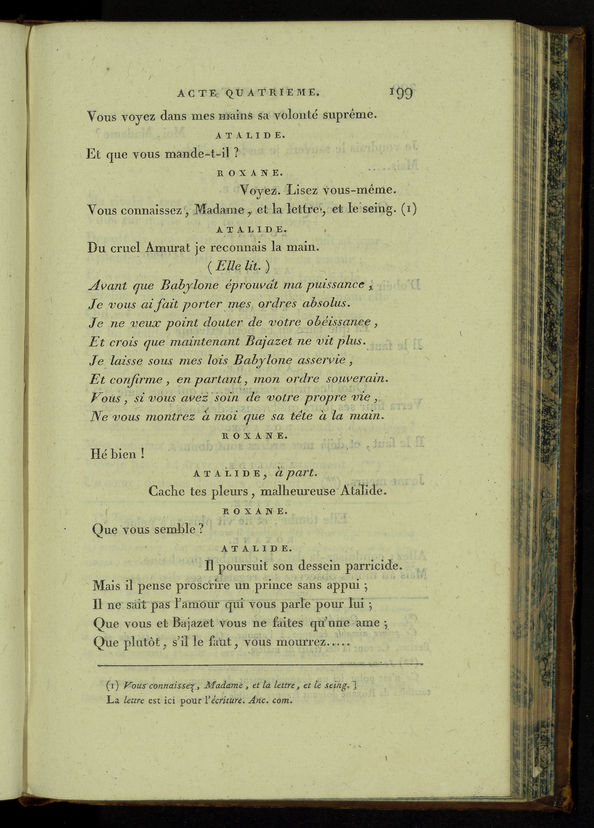 ACTE QUATRIEME. 199
Vous voyez dans mes mains sa volonté suprême.
ATALIDE.
Et que vous mande-t-il ?
ROXANE.
Voyez. Lisez vous-même.
Vous connaissez, Madame, et la lettre, et le seing. (1)
ATALIDE.
Du cruel Amurat je reconnais la main.
( Elle lit. )
Avant que Babylone éprouvât ma puissance,
Je vous ai fait porter mes ordres absolus.
Je ne veux point douter de votre obéissance,
Et crois que maintenant Bajazet ne vit plus.
Je laisse sous mes lois Babylone asservie,
Et confirme, en partant, mon ordre souverain.
Vous, si vous avez soin de votre propre vie,
Ne vous montrez à moi que sa tête à la main.
ROXANE.
Hé bien !
ATALIDE, à part.
Cache tes pleurs, malheureuse Atalide.
ROXANE.
Que vous semble ?
ATALIDE.
Il poursuit son dessein parricide.
Mais il pense proscrire un prince sans appui ;
Il ne sait pas l'amour qui vous parle pour lui ;
Que vous et Bajazet vous ne faites qu'une ame ;
Que plutôt, s'il le faut, vous mourrez.....
(1) Vous connaissez, Madame, et la lettre, et le seing. ]
La lettre est ici pour l'écriture. Anc. com.